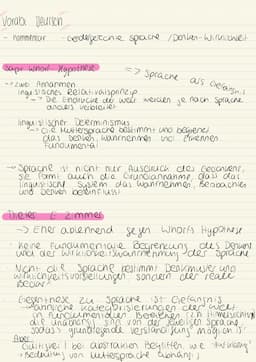 Vorabi Deutsch
Kommentar - vorangegangene Sprache / Denken - Wirklichkeit
Sapir Whorf Hypothese => Sprache als Gefängnis
-> zwei Annahmen
linguistisches Relativitätsprinzip
-> Die Eindrücke der Welt werden je nach Sprache
anders verarbeitet
linguistischer Determinismus
-> Die Muttersprache bestimmt und begrenzt
das Denken, Wahrnehmen und Erkennen
Fundamental
-> Sprache ist nicht nur Ausdruck des Gedankens,
sie formt auch die Grundannahme, dass das
linguistische System das Wahrnehmen, Beobachten
und Denken beeinflusst
Dieter E Zimmer
-> Eher ablehnend gegen Whorfs Hypothese
Keine fundamentale Begrenzung des Denkens
und der Wirklichkeitswahrnehmung der Sprache
Nicht die Sprache bestimmt Denkmuster und
Wirklichkeitsvorstellungen, sondern der reale
Bedarf
Gegenthese zu Sprache ist Gefängnis
in fundamentalen Bereichen
die unabhängig sind von der jeweiligen Sprache,
sodass grundlegende Verständigung möglich ist
Aber:
Gültigkeit bei abstrakten Begriffen wie
Bedeutung von Muttersprache abhängig